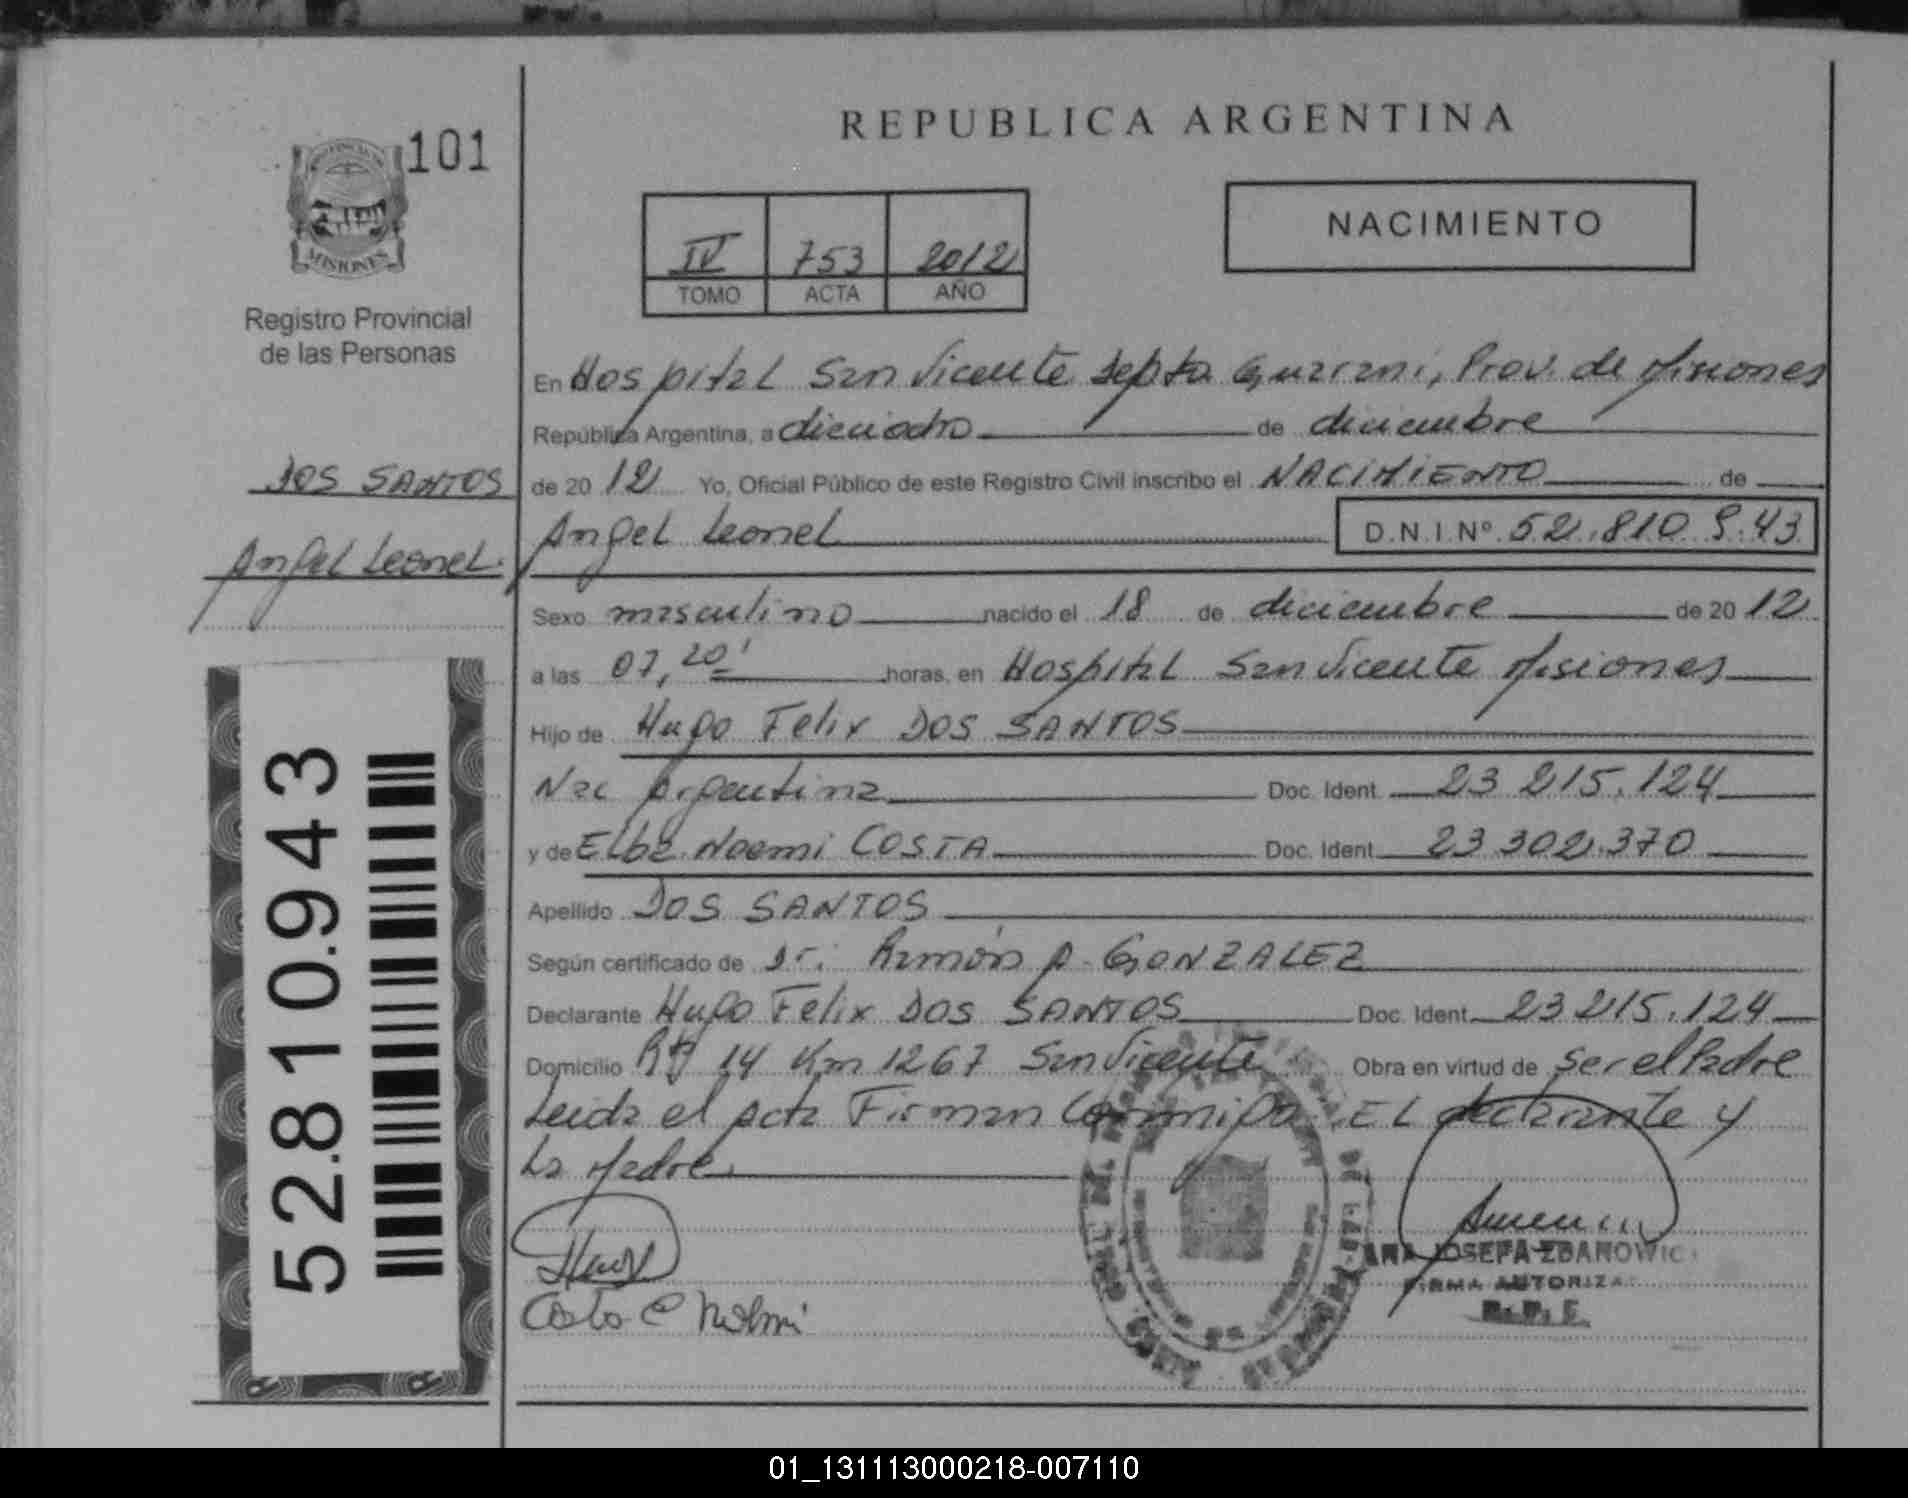 101
MISIONES
Registro Provincial
de las Personas
DOS SANTOS
Angel Leonel
52.810.943
REPUBLICA ARGENTINA
IV 753 2012
TOMO ACTA AÑO
NACIMIENTO
En Hospital San Vicente Depto Guarani, Prov. de Misiones
República Argentina, a dieciocho de diciembre
de 2012 Yo, Oficial Público de este Registro Civil inscribo el NACIMIENTO de
Angel Leonel D.N.I.Nº 52.810.943
Sexo masculino nacido el 18 de diciembre de 2012
a las 07,20' horas, en Hospital San Vicente Misiones
Hijo de Hugo Felix DOS SANTOS
Nac Argentina Doc. Ident. 23 215.124
y de Elba Noemi COSTA Doc. Ident. 23 302.370
Apellido DOS SANTOS
Según certificado de Dr: Ramón A. GONZALEZ
Declarante Hugo Felix DOS SANTOS Doc. Ident. 23 215.124
Domicilio 14 Km 1267 San Vicente Obra en virtud de ser el Padre
Leida el acta Firman Conmigo: EL declarante y
La Madre
JOSEFA ZDANOWIC
FIRMA AUTORIZA
01_131113000218-007110